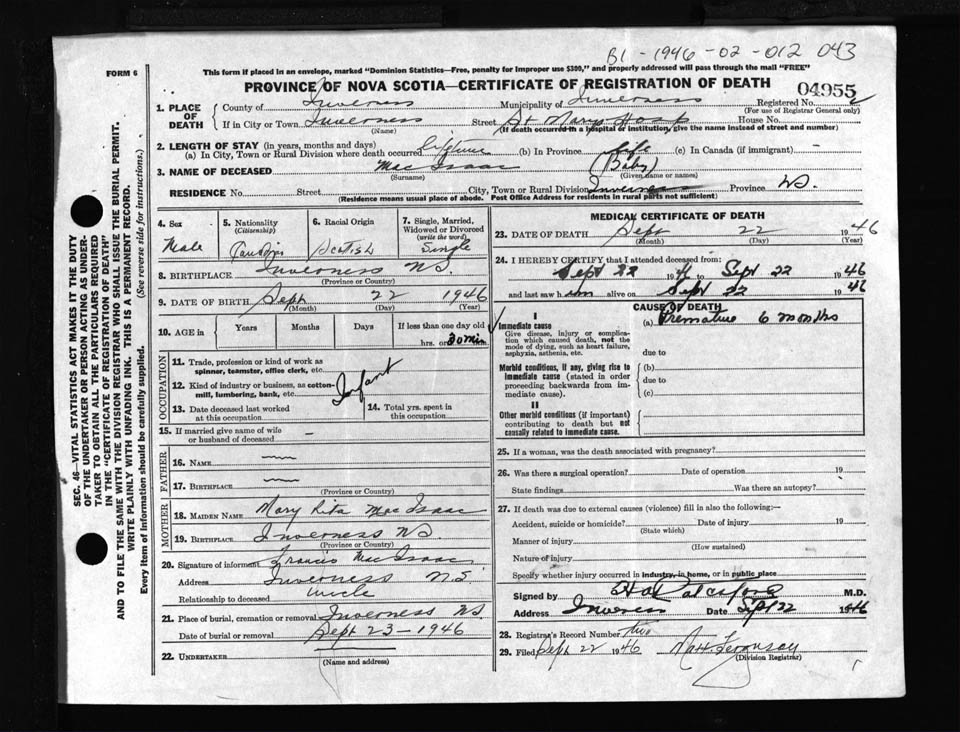 B1 - 1946 - 02 - 012 043
FORM 6
This form if placed in an envelope, marked "Dominion Statistics—Free, penalty for improper use $300," and properly addressed will pass through the mail "FREE"
PROVINCE OF NOVA SCOTIA—CERTIFICATE OF REGISTRATION OF DEATH
04955
1. PLACE OF DEATH
County of Inverness Municipality of Inverness Registered No.
(For use of Registrar General only)
If in City or Town Inverness Street St Marys Hosp House No.
(Name) (If death occurred in a hospital or institution, give the name instead of street and number)
2. LENGTH OF STAY (in years, months and days)
(a) In City, Town or Rural Division where death occurred Lifetime (b) In Province Life (c) In Canada (if immigrant) —
3. NAME OF DECEASED Mac Isaac (Baby)
(Surname) (Given name or names)
RESIDENCE No. Street City, Town or Rural Division Inverness Province NS.
(Residence means usual place of abode. Post Office Address for residents in rural parts not sufficient)
4. Sex
Male
5. Nationality
(Citizenship)
6. Racial Origin
Scotish
7. Single, Married, Widowed or Divorced
(write the word)
Single
8. BIRTHPLACE Inverness NS.
(Province or Country)
9. DATE OF BIRTH Sept 22 1946
(Month) (Day) (Year)
10. AGE in Years Months Days If less than one day old
hrs. or 30 min.
OCCUPATION
11. Trade, profession or kind of work as spinner, teamster, office clerk, etc.
12. Kind of industry or business, as cotton-mill, lumbering, bank, etc.
Infant
13. Date deceased last worked at this occupation
14. Total yrs. spent in this occupation
15. If married give name of wife or husband of deceased —
FATHER
16. NAME —
17. BIRTHPLACE —
(Province or Country)
MOTHER
18. MAIDEN NAME Mary Rita Mac Isaac
19. BIRTHPLACE Inverness NS.
(Province or Country)
20. Signature of informant Francis Mac Isaac
Address Inverness N.S.
Relationship to deceased uncle
21. Place of burial, cremation or removal Inverness NS.
Date of burial or removal Sept 23 - 1946
22. UNDERTAKER
(Name and address)
MEDICAL CERTIFICATE OF DEATH
23. DATE OF DEATH Sept 22 1946
(Month) (Day) (Year)
24. I HEREBY CERTIFY that I attended deceased from:
Sept 22 19 46 to Sept 22 1946
and last saw him alive on Sept 22 1946
CAUSE OF DEATH
I
Immediate cause
Give disease, injury or complication which caused death, not the mode of dying, such as heart failure, asphyxia, asthenia, etc.
(a) Premature 6 months
due to
Morbid conditions, if any, giving rise to immediate cause (stated in order proceeding backwards from immediate cause).
(b)
due to
(c)
II
Other morbid conditions (if important) contributing to death but not causally related to immediate cause.
25. If a woman, was the death associated with pregnancy?
26. Was there a surgical operation? Date of operation 19
State findings Was there an autopsy?
27. If death was due to external causes (violence) fill in also the following:—
Accident, suicide or homicide? Date of injury 19
(State which)
Manner of injury
(How sustained)
Nature of injury
Specify whether injury occurred in industry, in home, or in public place
Signed by M.D.
Address Inverness Date Sept 22 1946
28. Registrar's Record Number two
29. Filed Sept 22 1946 Ferguson
(Division Registrar)
SEC. 46—VITAL STATISTICS ACT MAKES IT THE DUTY
OF THE UNDERTAKER OR PERSON ACTING AS UNDER-
TAKER TO OBTAIN ALL THE PARTICULARS REQUIRED
IN THE "CERTIFICATE OF REGISTRATION OF DEATH"
AND TO FILE THE SAME WITH THE DIVISION REGISTRAR WHO SHALL ISSUE THE BURIAL PERMIT.
WRITE PLAINLY WITH UNFADING INK. THIS IS A PERMANENT RECORD.
Every item of information should be carefully supplied. (See reverse side for instructions.)